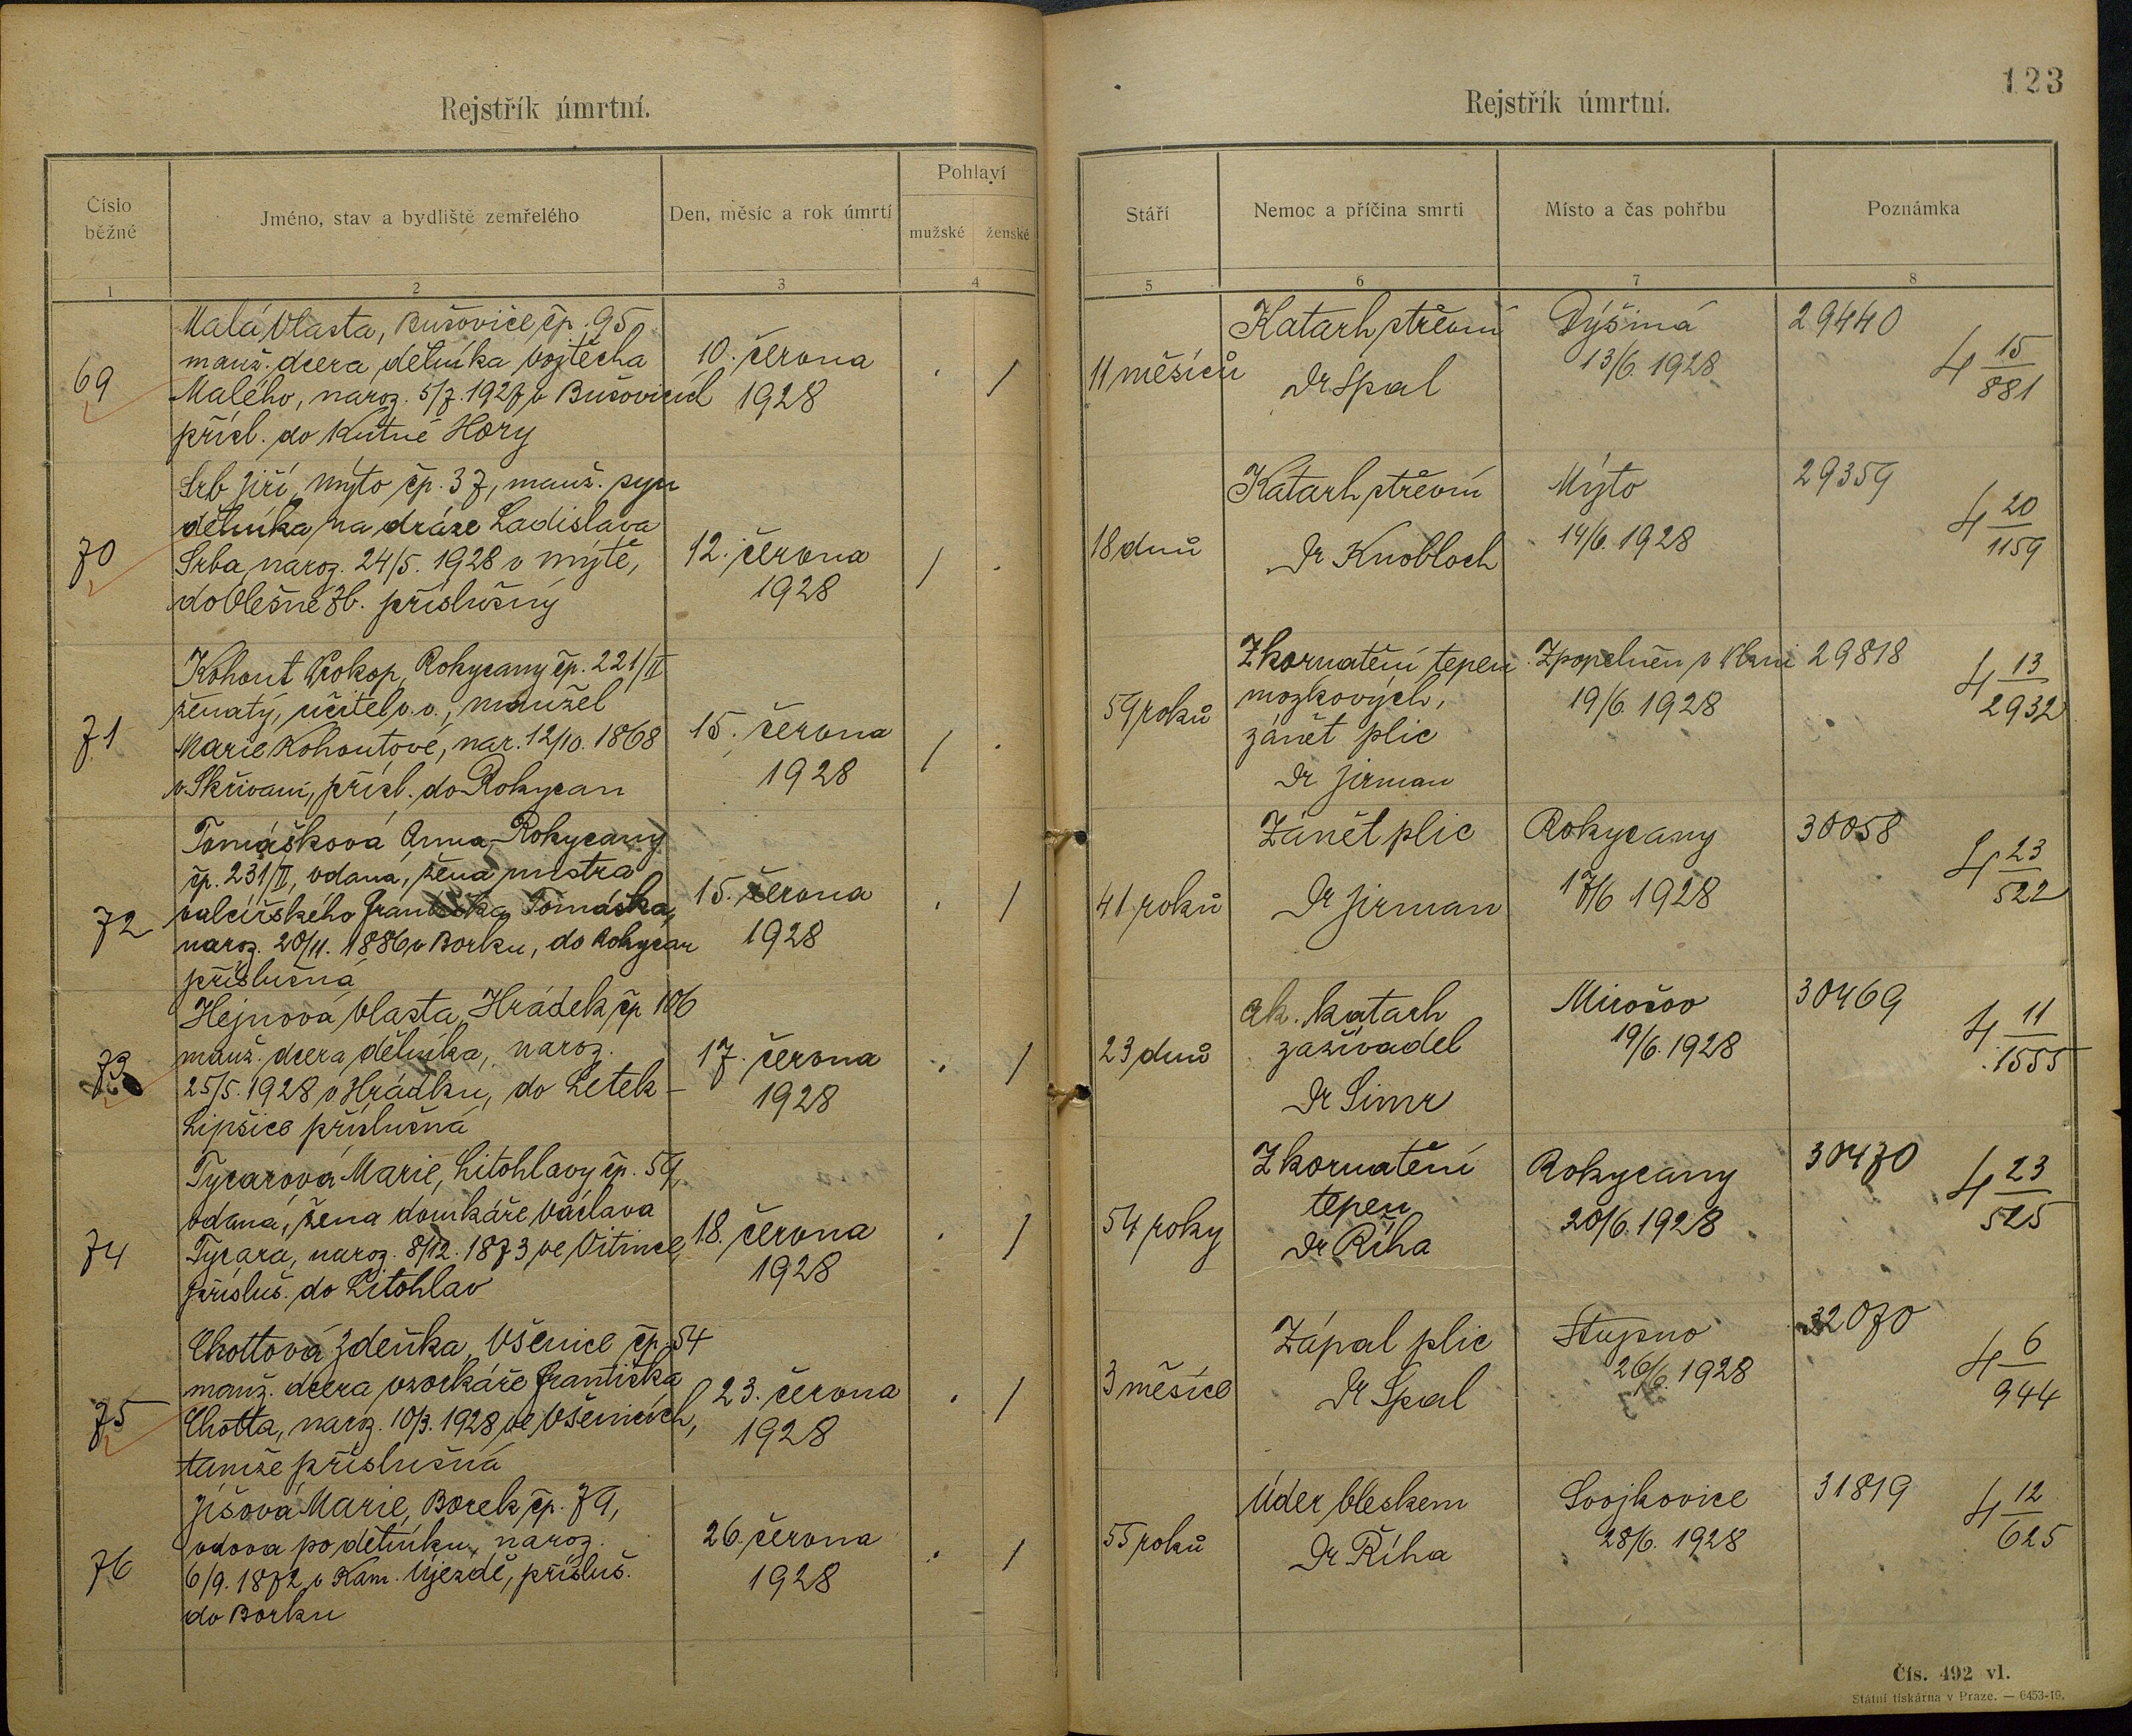 123
Rejstřík úmrtní.
Rejstřík úmrtní.
Číslo běžné
Jméno, stav a bydliště zemřelého
Den, měsíc a rok úmrtí
Pohlaví
mužské
ženské
Stáří
Nemoc a příčina smrti
Místo a čas pohřbu
Poznámka
1
2
3
4
5
6
7
8
69
Malá Vlasta, Bušovice čp. 95
manž. dcera dělníka Vojtěcha
Malého, naroz. 5/7. 1927 v Bušovicích
přísl. do Kutné Hory
10. června
1928
. /
11 měsíců
Katarh střevní
Dr Spal
Dýšiná
13/6. 1928
29440
4 15/881
70
Srb Jiří, Mýto čp. 37, manž. syn
dělníka na dráze Ladislava
Srba, naroz. 24/5. 1928 v Mýtě,
do Olešné Zb. příslušný
12. června
1928
/ .
18 dnů
Katarh střevní
Dr Knobloch
Mýto
14/6. 1928
29359
4 20/1159
71
Kohout Prokop, Rokycany čp. 221/II
ženatý, učitel v. v., manžel
Marie Kohoutové, nar. 12/10. 1868
v Skřivani, přísl. do Rokycan
15. června
1928
/ .
59 roků
Zkornatění tepen
mozkových,
zánět plic
Dr Jirman
Zpopelněn v Plzni
19/6. 1928
29818
4 13/2932
72
Tomášková Anna, Rokycany
čp. 231/II, vdaná, žena mistra
valcířského Františka Tomáška,
naroz. 20/11. 1886 v Borku, do Rokycan
příslušná
15. června
1928
. /
41 roků
Zánět plic
Dr Jirman
Rokycany
17/6 1928
30058
4 23/522
73
Hejnová Vlasta, Hrádek čp 106
manž. dcera dělníka, naroz.
25/5. 1928 v Hrádku, do Letek-
Lipšice příslušná
17. června
1928
. /
23 dnů
ak. katarh
zažívadel
Dr Simr
Mirošov
19/6. 1928
30469
4 11/1555
74
Tycarová Marie, Litohlavy čp. 59,
vdaná, žena domkáře Václava
Tycara, naroz. 8/12. 1873 ve Vitince,
přísluš. do Litohlav
18. června
1928
. /
54 roky
Zkornatění
tepen
Dr Říha
Rokycany
20/6. 1928
30470
4 23/525
75
Chottová Zdeňka, Všenice čp. 54
manž. dcera vzorkáře Františka
Chotta, naroz. 10/3. 1928 ve Všenicích,
tamže příslušná
23. června
1928
. /
3 měsíce
Zápal plic
Dr Spal
Stupno
26/6. 1928
32070
4 6/944
76
Jíšová Marie, Borek čp. 79,
vdova po dělníku, naroz.
6/9. 1872 v Kam. Újezdě, přísluš.
do Borku
26. června
1928
. /
55 roků
Úder bleskem
Dr Říha
Svojkovice
28/6. 1928
31819
4 12/625
Čís. 492 vl.
Státní tiskárna v Praze. — 6453-19.